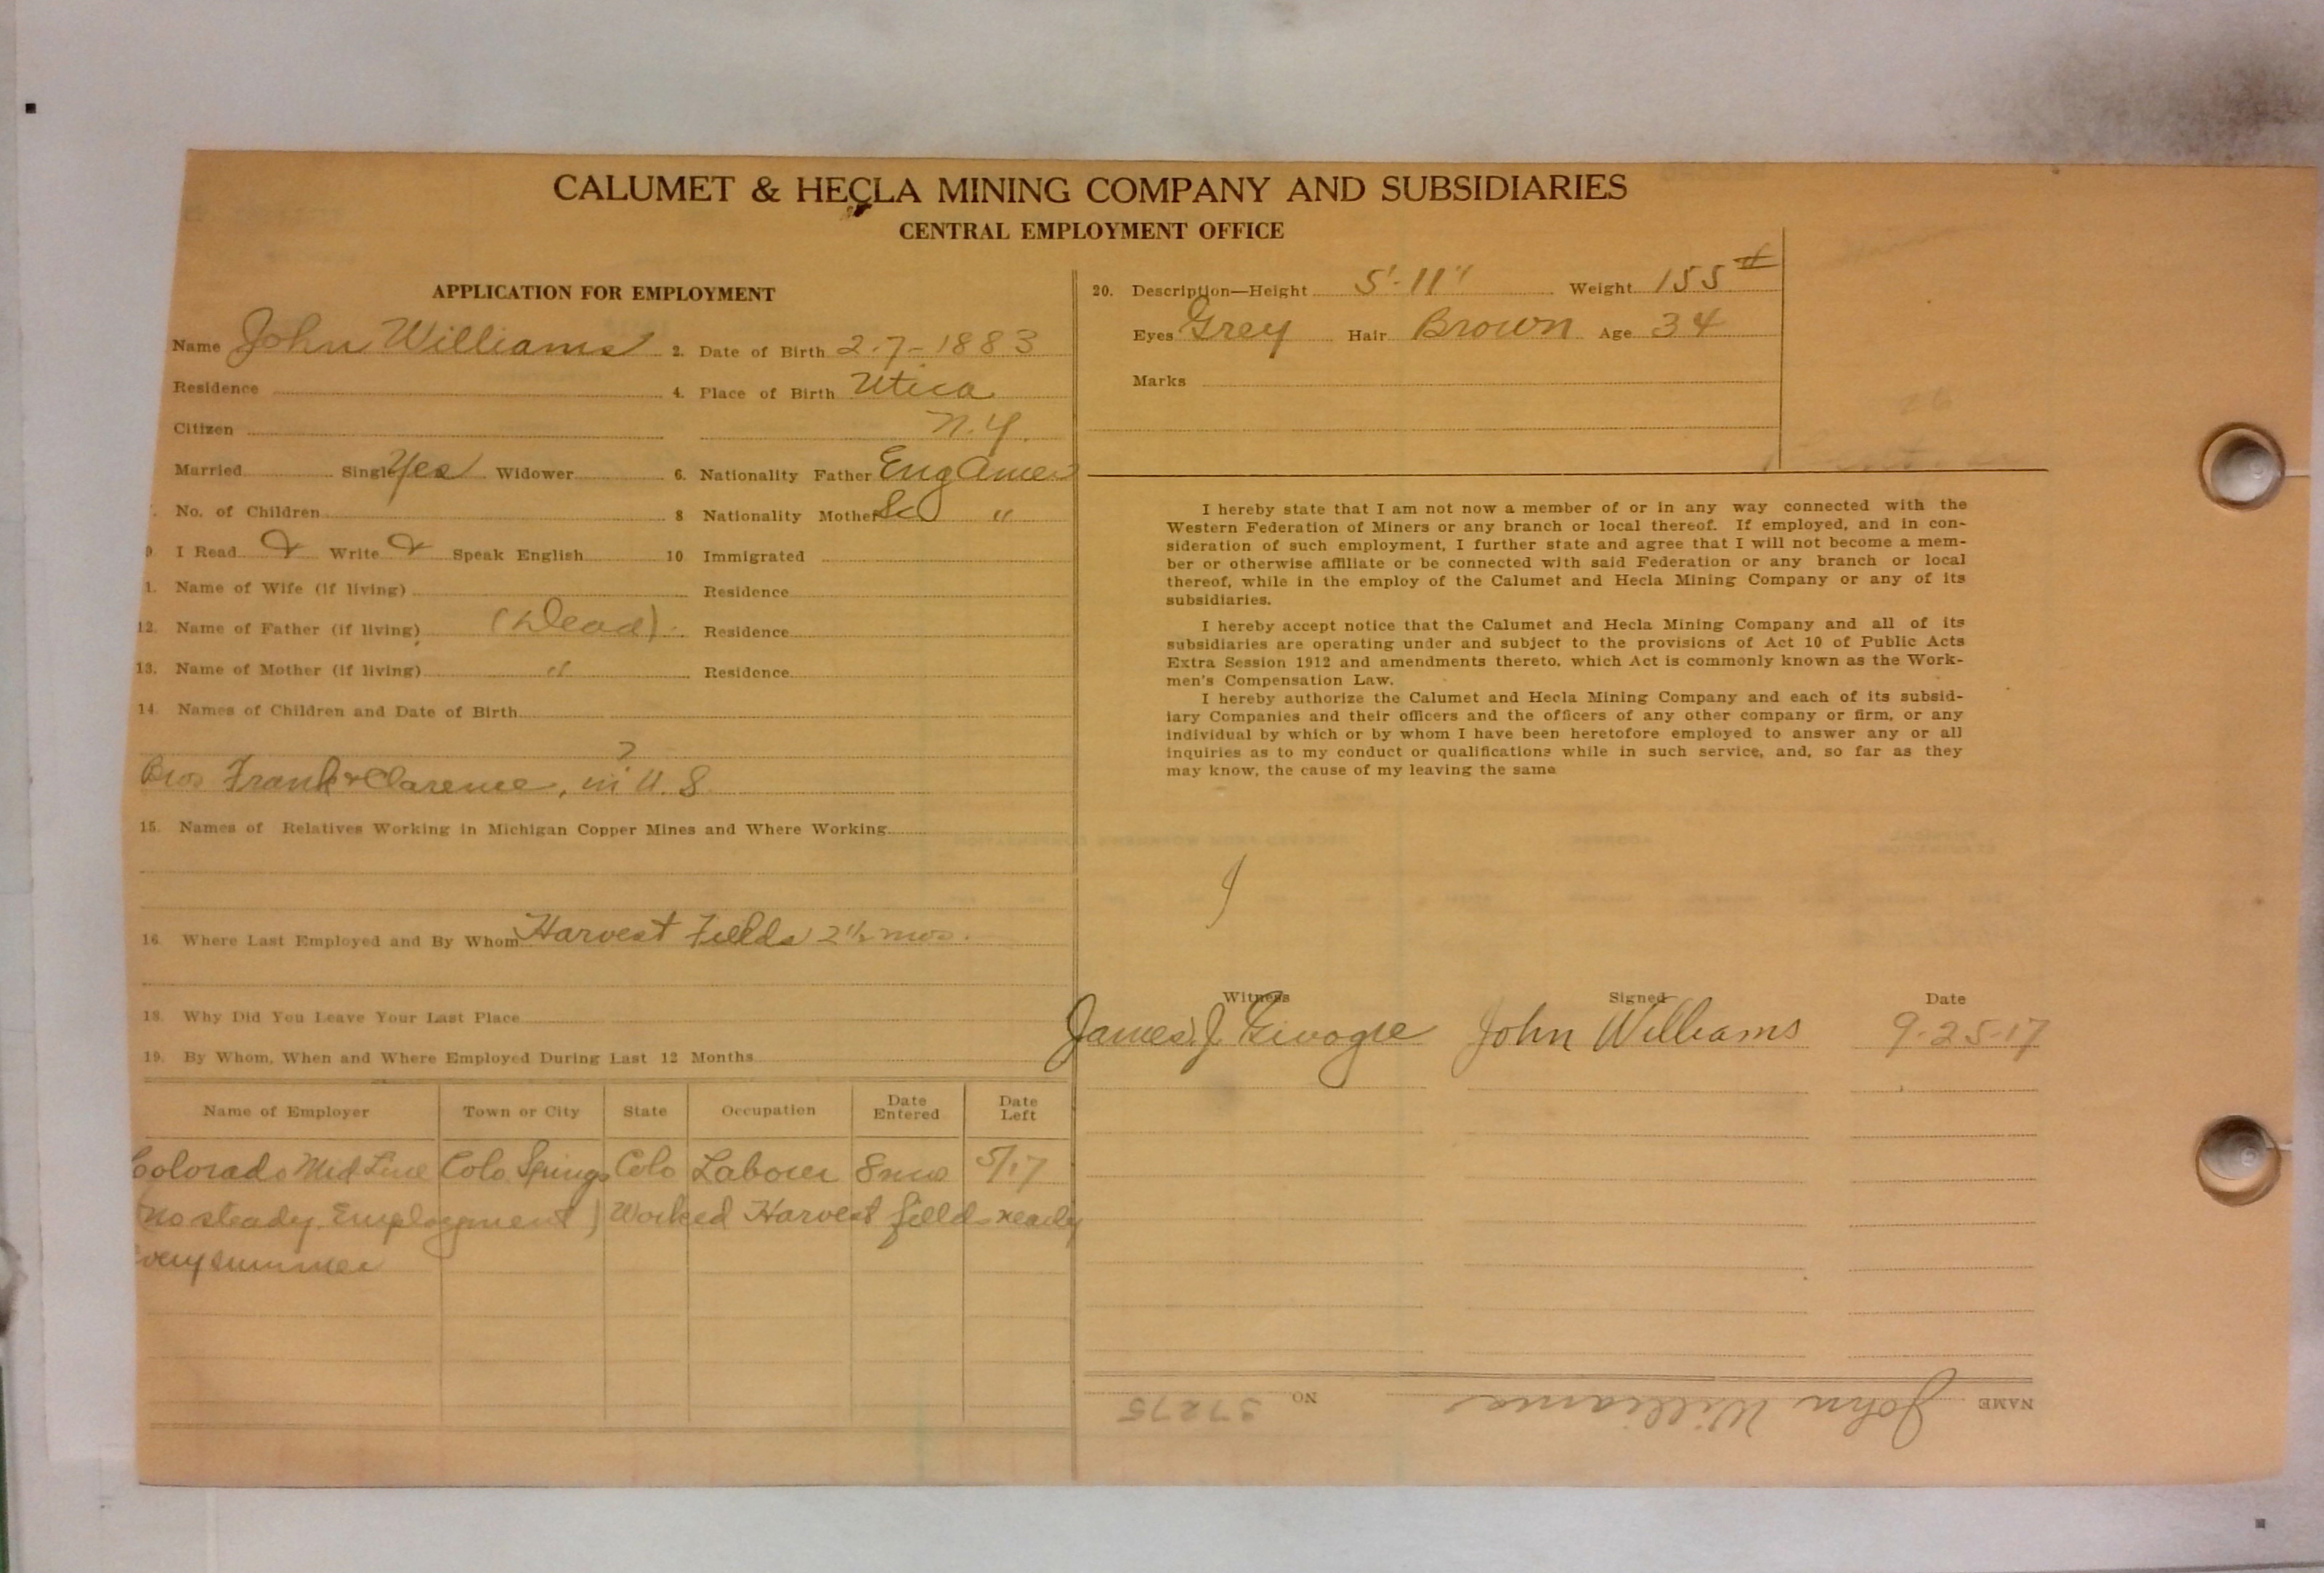 CALUMET & HECLA MINING COMPANY AND SUBSIDIARIES
CENTRAL EMPLOYMENT OFFICE
APPLICATION FOR EMPLOYMENT
Name John Williams 2. Date of Birth 2-7-1883
Residence 4. Place of Birth Utica
Citizen N.Y.
Married Single Yes Widower 6. Nationality Father Eng Amer
No. of Children 8 Nationality Mother "
9. I Read Write Speak English 10 Immigrated
1. Name of Wife (if living) Residence
12. Name of Father (if living) (Dead) Residence
13. Name of Mother (if living) " Residence
14. Names of Children and Date of Birth
?
Bros Frank & Clarence, in U.S.
15. Names of Relatives Working in Michigan Copper Mines and Where Working
16. Where Last Employed and By Whom Harvest Fields 2 1/2 mos.
18. Why Did You Leave Your Last Place
19. By Whom, When and Where Employed During Last 12 Months
Name of Employer Town or City State Occupation Date Entered Date Left
Colorado Mid Line Colo Springs Colo Laborer 8 mos 5/17
(No steady Employment) Worked Harvest fields nearly
every summer
20. Description—Height 5'-11" Weight 155 #
Eyes Grey Hair Brown Age 34
Marks
I hereby state that I am not now a member of or in any way connected with the
Western Federation of Miners or any branch or local thereof. If employed, and in con-
sideration of such employment, I further state and agree that I will not become a mem-
ber or otherwise affiliate or be connected with said Federation or any branch or local
thereof, while in the employ of the Calumet and Hecla Mining Company or any of its
subsidiaries.
I hereby accept notice that the Calumet and Hecla Mining Company and all of its
subsidiaries are operating under and subject to the provisions of Act 10 of Public Acts
Extra Session 1912 and amendments thereto, which Act is commonly known as the Work-
men's Compensation Law.
I hereby authorize the Calumet and Hecla Mining Company and each of its subsid-
iary Companies and their officers and the officers of any other company or firm, or any
individual by which or by whom I have been heretofore employed to answer any or all
inquiries as to my conduct or qualifications while in such service, and, so far as they
may know, the cause of my leaving the same
Witness Signed Date
James J. John Williams 9-25-17
NAME John Williams NO 37275